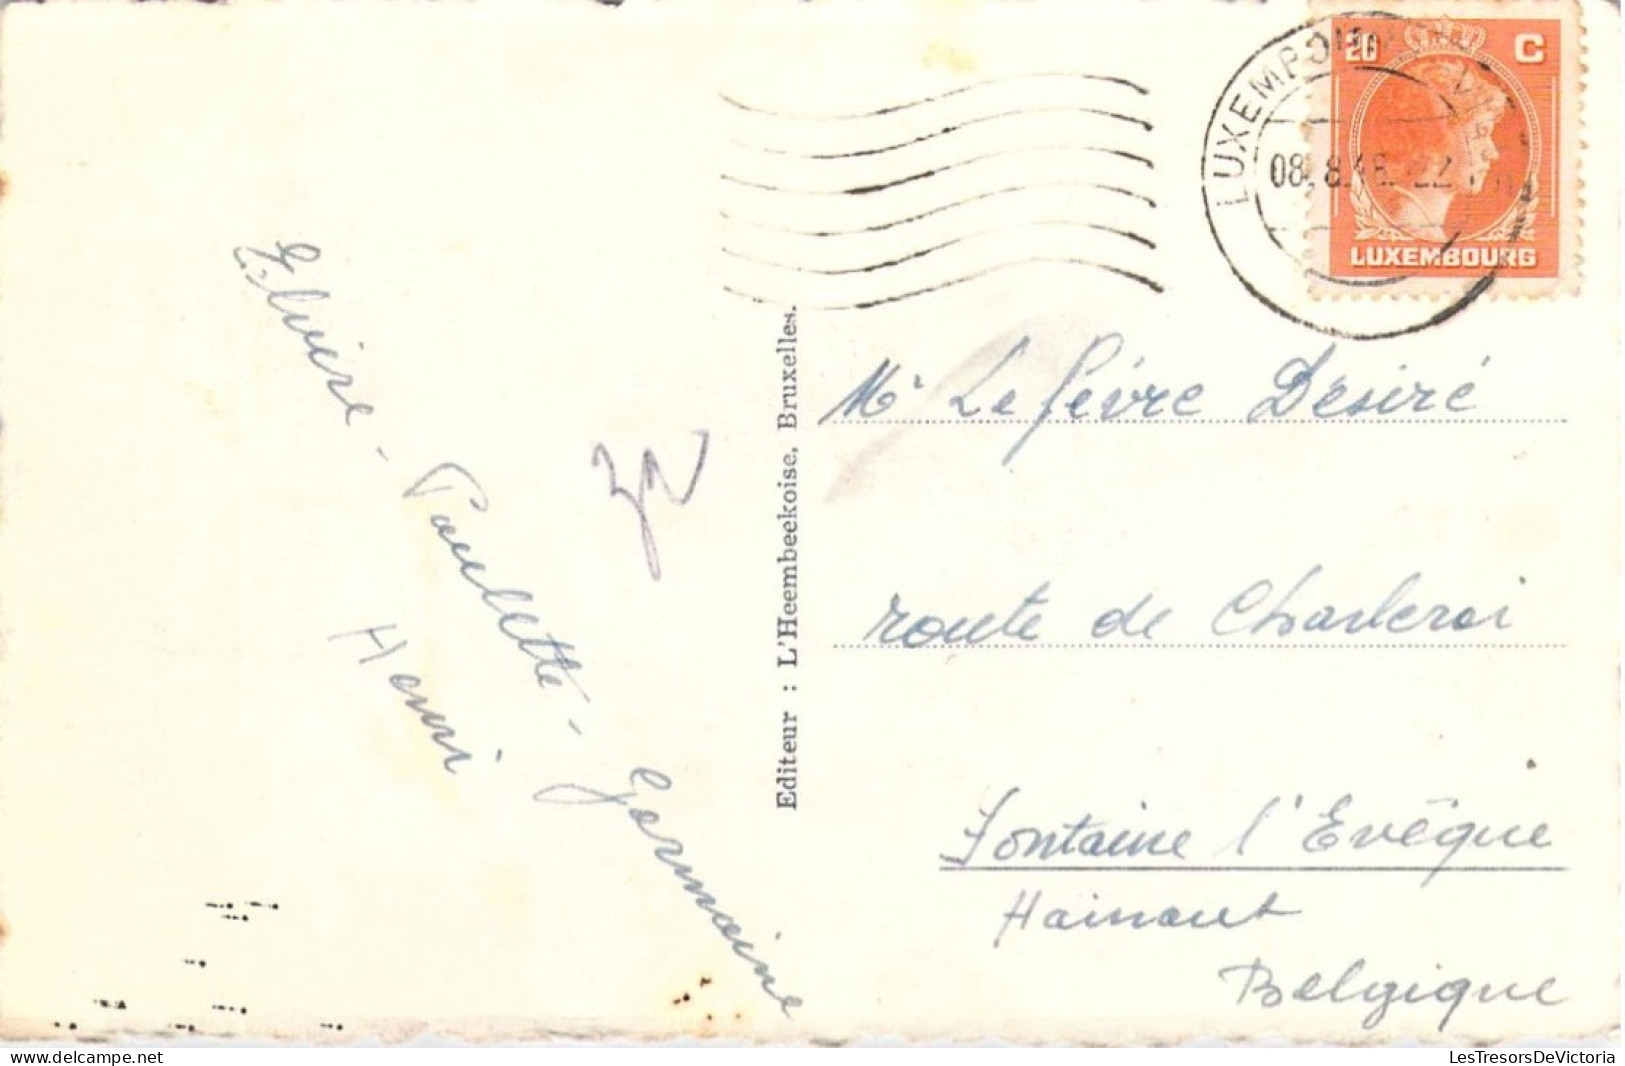 20 C
LUXEMBOURG
Elvire - Paulette - Germaine
Henri
Editeur : L'Heembeekoise, Bruxelles.
Mr Lefévre Désiré
route de Charleroi
Fontaine l'Evêque
Hainaut
Belgique
LesTresorsDeVictoria